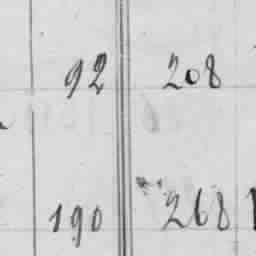 92 208
190 268